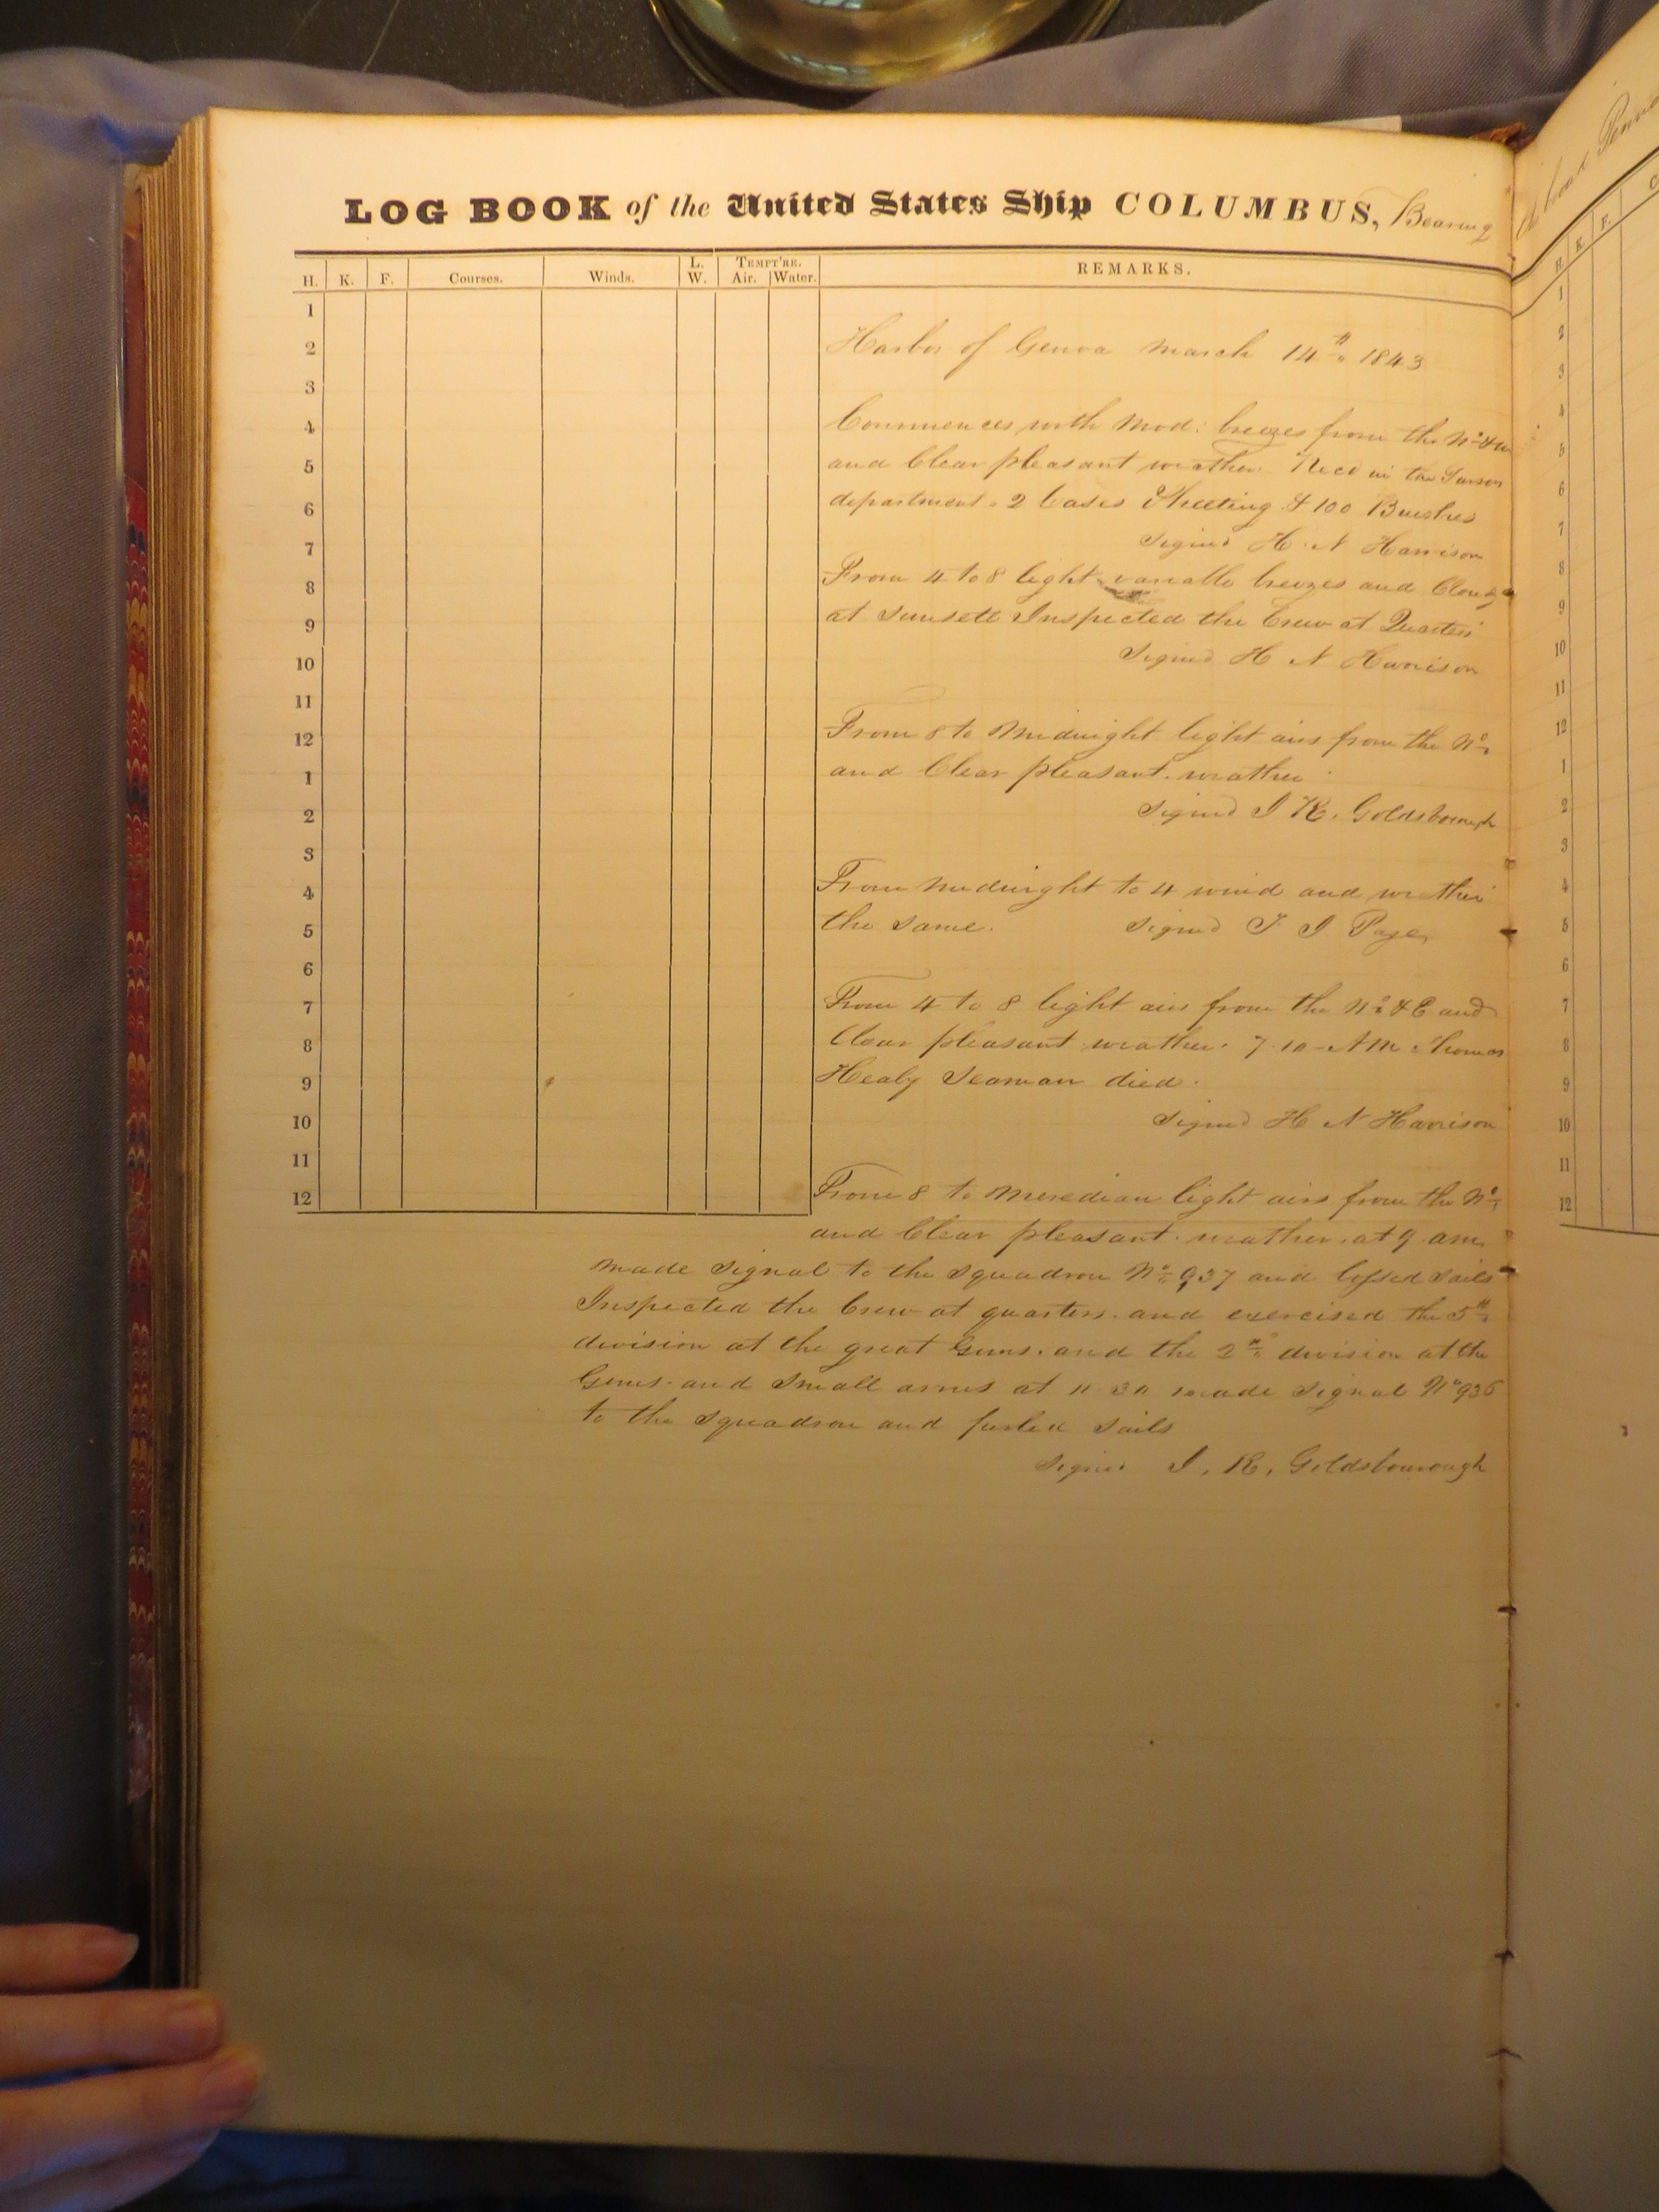 LOG BOOK of the United States Ship COLUMBUS, Bearing
H. K. F. Courses. Winds. L. W. TEMPT'RE. Air. Water. REMARKS.
1
2
3
4
5
6
7
8
9
10
11
12
1
2
3
4
5
6
7
8
9
10
11
12
Harbor of Genoa March 14th 1843
Commences with Mod: breezes from the No & W
and Clear pleasant weather. Recd in the Purser
department. 2 Cases Sheeting & 100 Brushes
Signed H. N Harrison
From 4 to 8 light variable breezes and Cloudy
at sunsett Inspected the Crew at Quarters
Signed H N Harrison
From 8 to Midnight light airs from the No
and Clear pleasant. weather
Signed J R. Goldsborough
From Midnight to 4 wind and weather
the same. Signed T. J Page
From 4 to 8 light airs from the No & E and
Clear pleasant weather. 7.10 - AM Thomas
Healy Seaman died.
Signed H N Harrison
From 8 to Meredian light airs from the No
and Clear pleasant. weather. at 9. am
made signal to the squadron No 937 and loossed sails
Inspected the Crew at quarters. and exercised the 5th
division at the great Guns. and the 2nd division at the
Guns. and small arms at 11.30 made signal No 936
to the squadron and furled sails
Signed J. R. Goldsbourough
On board
H. K. F.
1
2
3
4
5
6
7
8
9
10
11
12
1
2
3
4
5
6
7
8
9
10
11
12